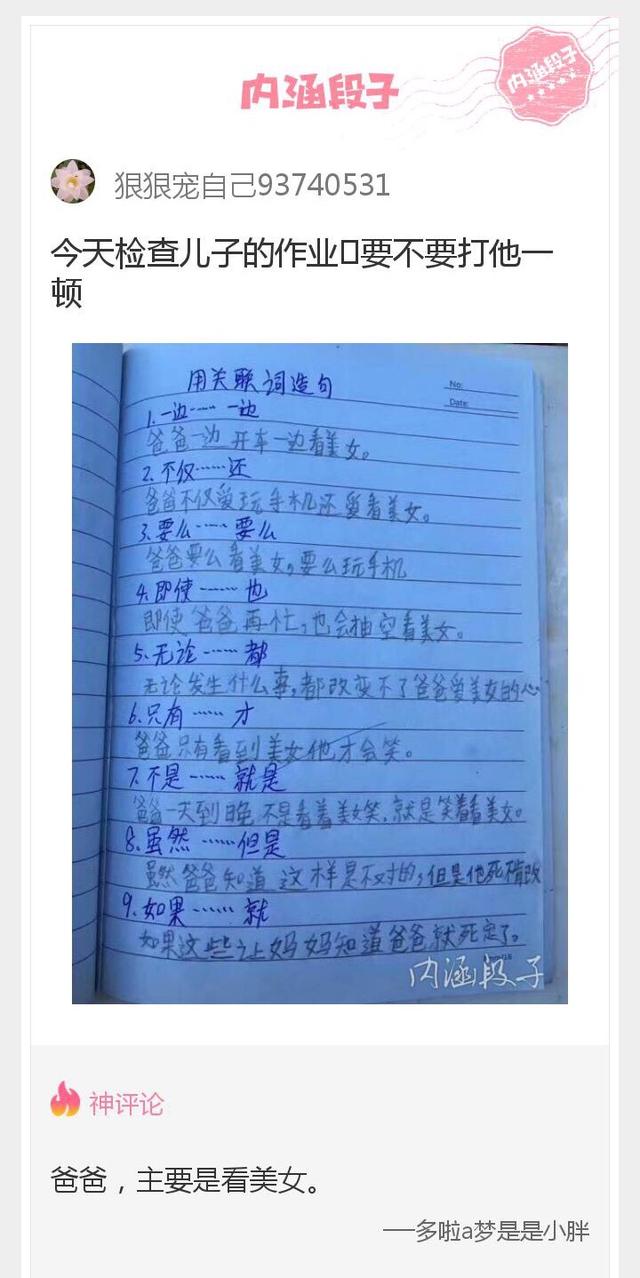 内涵段子
内涵段子
狠狠宠自己93740531
今天检查儿子的作业▯要不要打他一
顿
用关联词造句
No:
Date:
1.一边……一边
爸爸一边开车一边看美女。
2.不仅……还
爸爸不仅爱玩手机还爱看美女。
3.要么……要么
爸爸要么看美女,要么玩手机
4.即使……也
即使爸爸再忙,也会抽空看美女。
5.无论……都
无论发生什么事,都改变不了爸爸爱美女的心
6.只有……才
爸爸只有看到美女他才会笑。
7.不是……就是
爸爸一天到晚不是看着美女笑,就是笑着看美女。
8.虽然……但是
虽然爸爸知道这样是不对的,但是他死
9.如果……就
如果这些让妈妈知道爸爸就死定了。
内涵段子
神评论
爸爸，主要是看美女。
──多啦a梦是是小胖